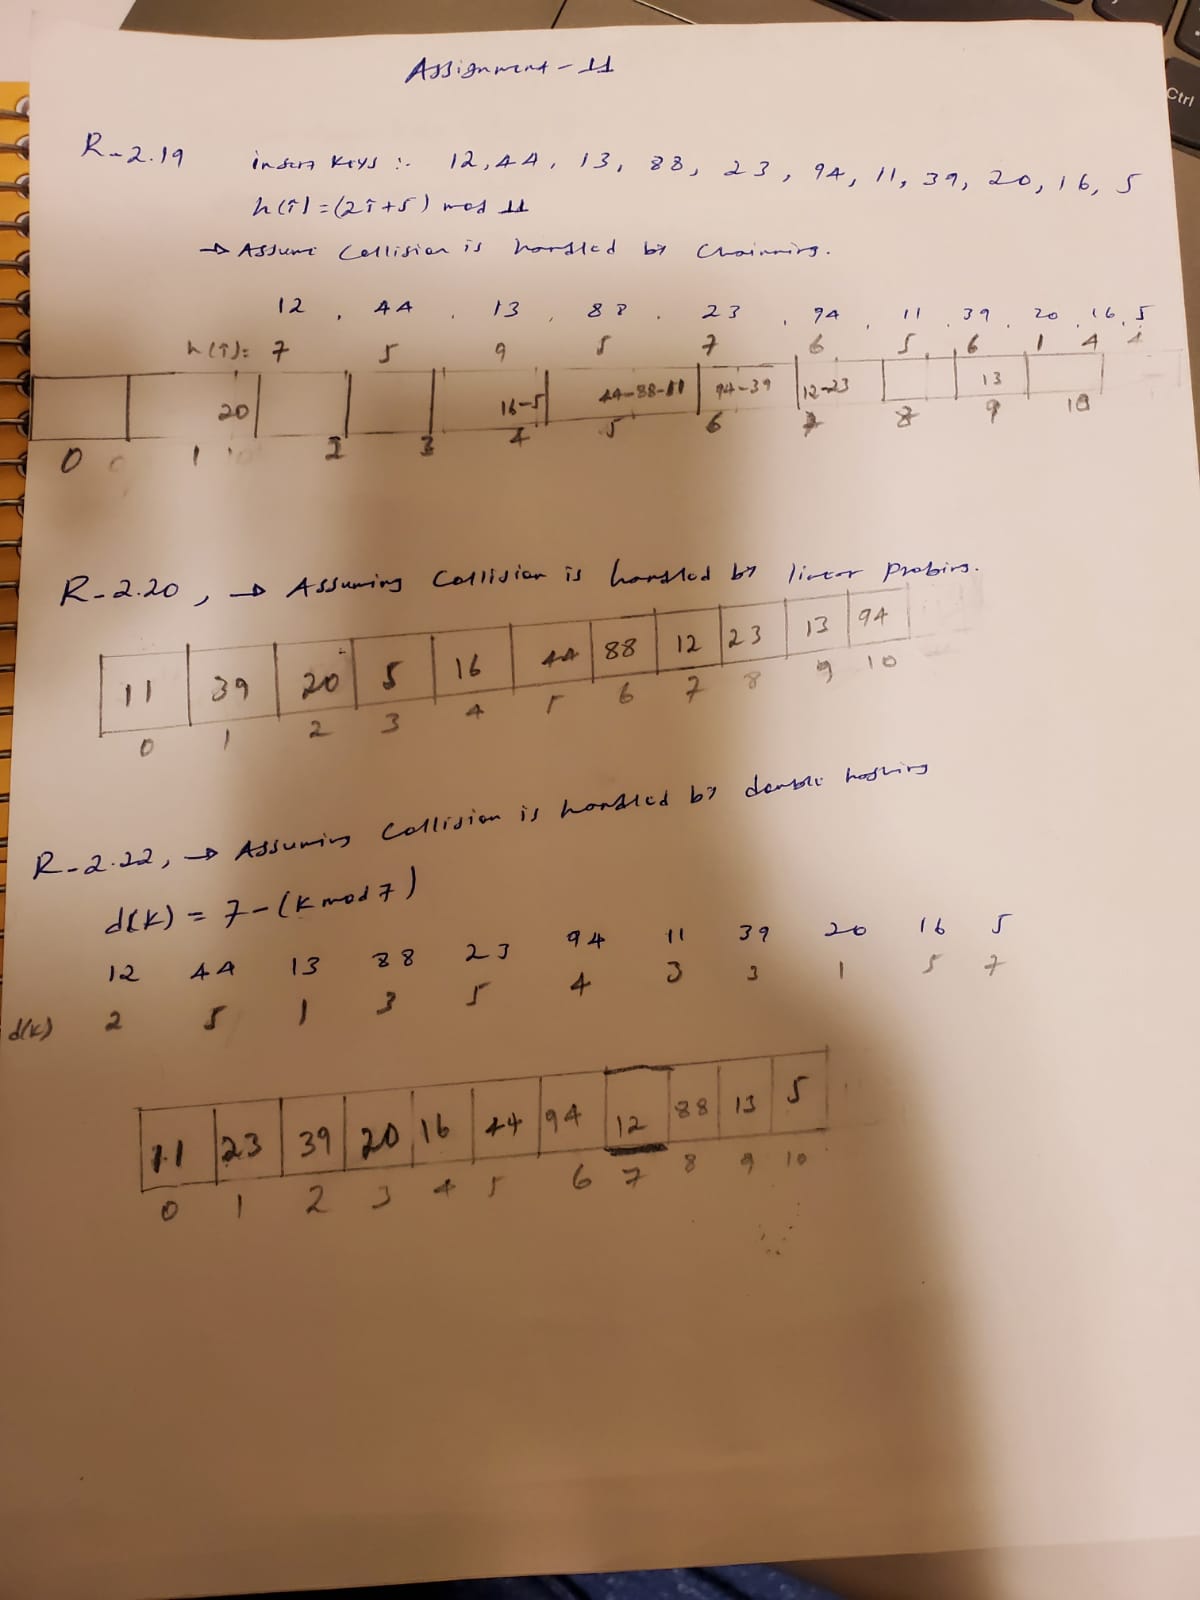 Assignment-11
R-2.19 insert keys :- 12, 44, 13, 88, 23, 94, 11, 39, 20, 16, 5
h(i)=(2i+5) mod 11
→ Assume Collision is handled by Chainning.
12 , 44 , 13 , 88 . 23 , 94 , 11 , 39 . 20 . 16, 5
h(i): 7 5 9 5 7 6 5 6 1 4 4
20 16-5 44-88-11 94-39 12-23 13
0 1 2 3 4 5 6 7 8 9 10
R-2.20 , → Assuming Collision is handled by linear Probing.
11 39 20 5 16 44 88 12 23 13 94
0 1 2 3 4 5 6 7 8 9 10
R-2.22, → Assuming Collision is handled by double hashing
d(k) = 7-(k mod 7)
12 44 13 88 23 94 11 39 20 16 5
d(k) 2 5 1 3 5 4 3 3 1 5 7
11 23 39 20 16 44 94 12 88 13 5
0 1 2 3 4 5 6 7 8 9 10
Ctrl